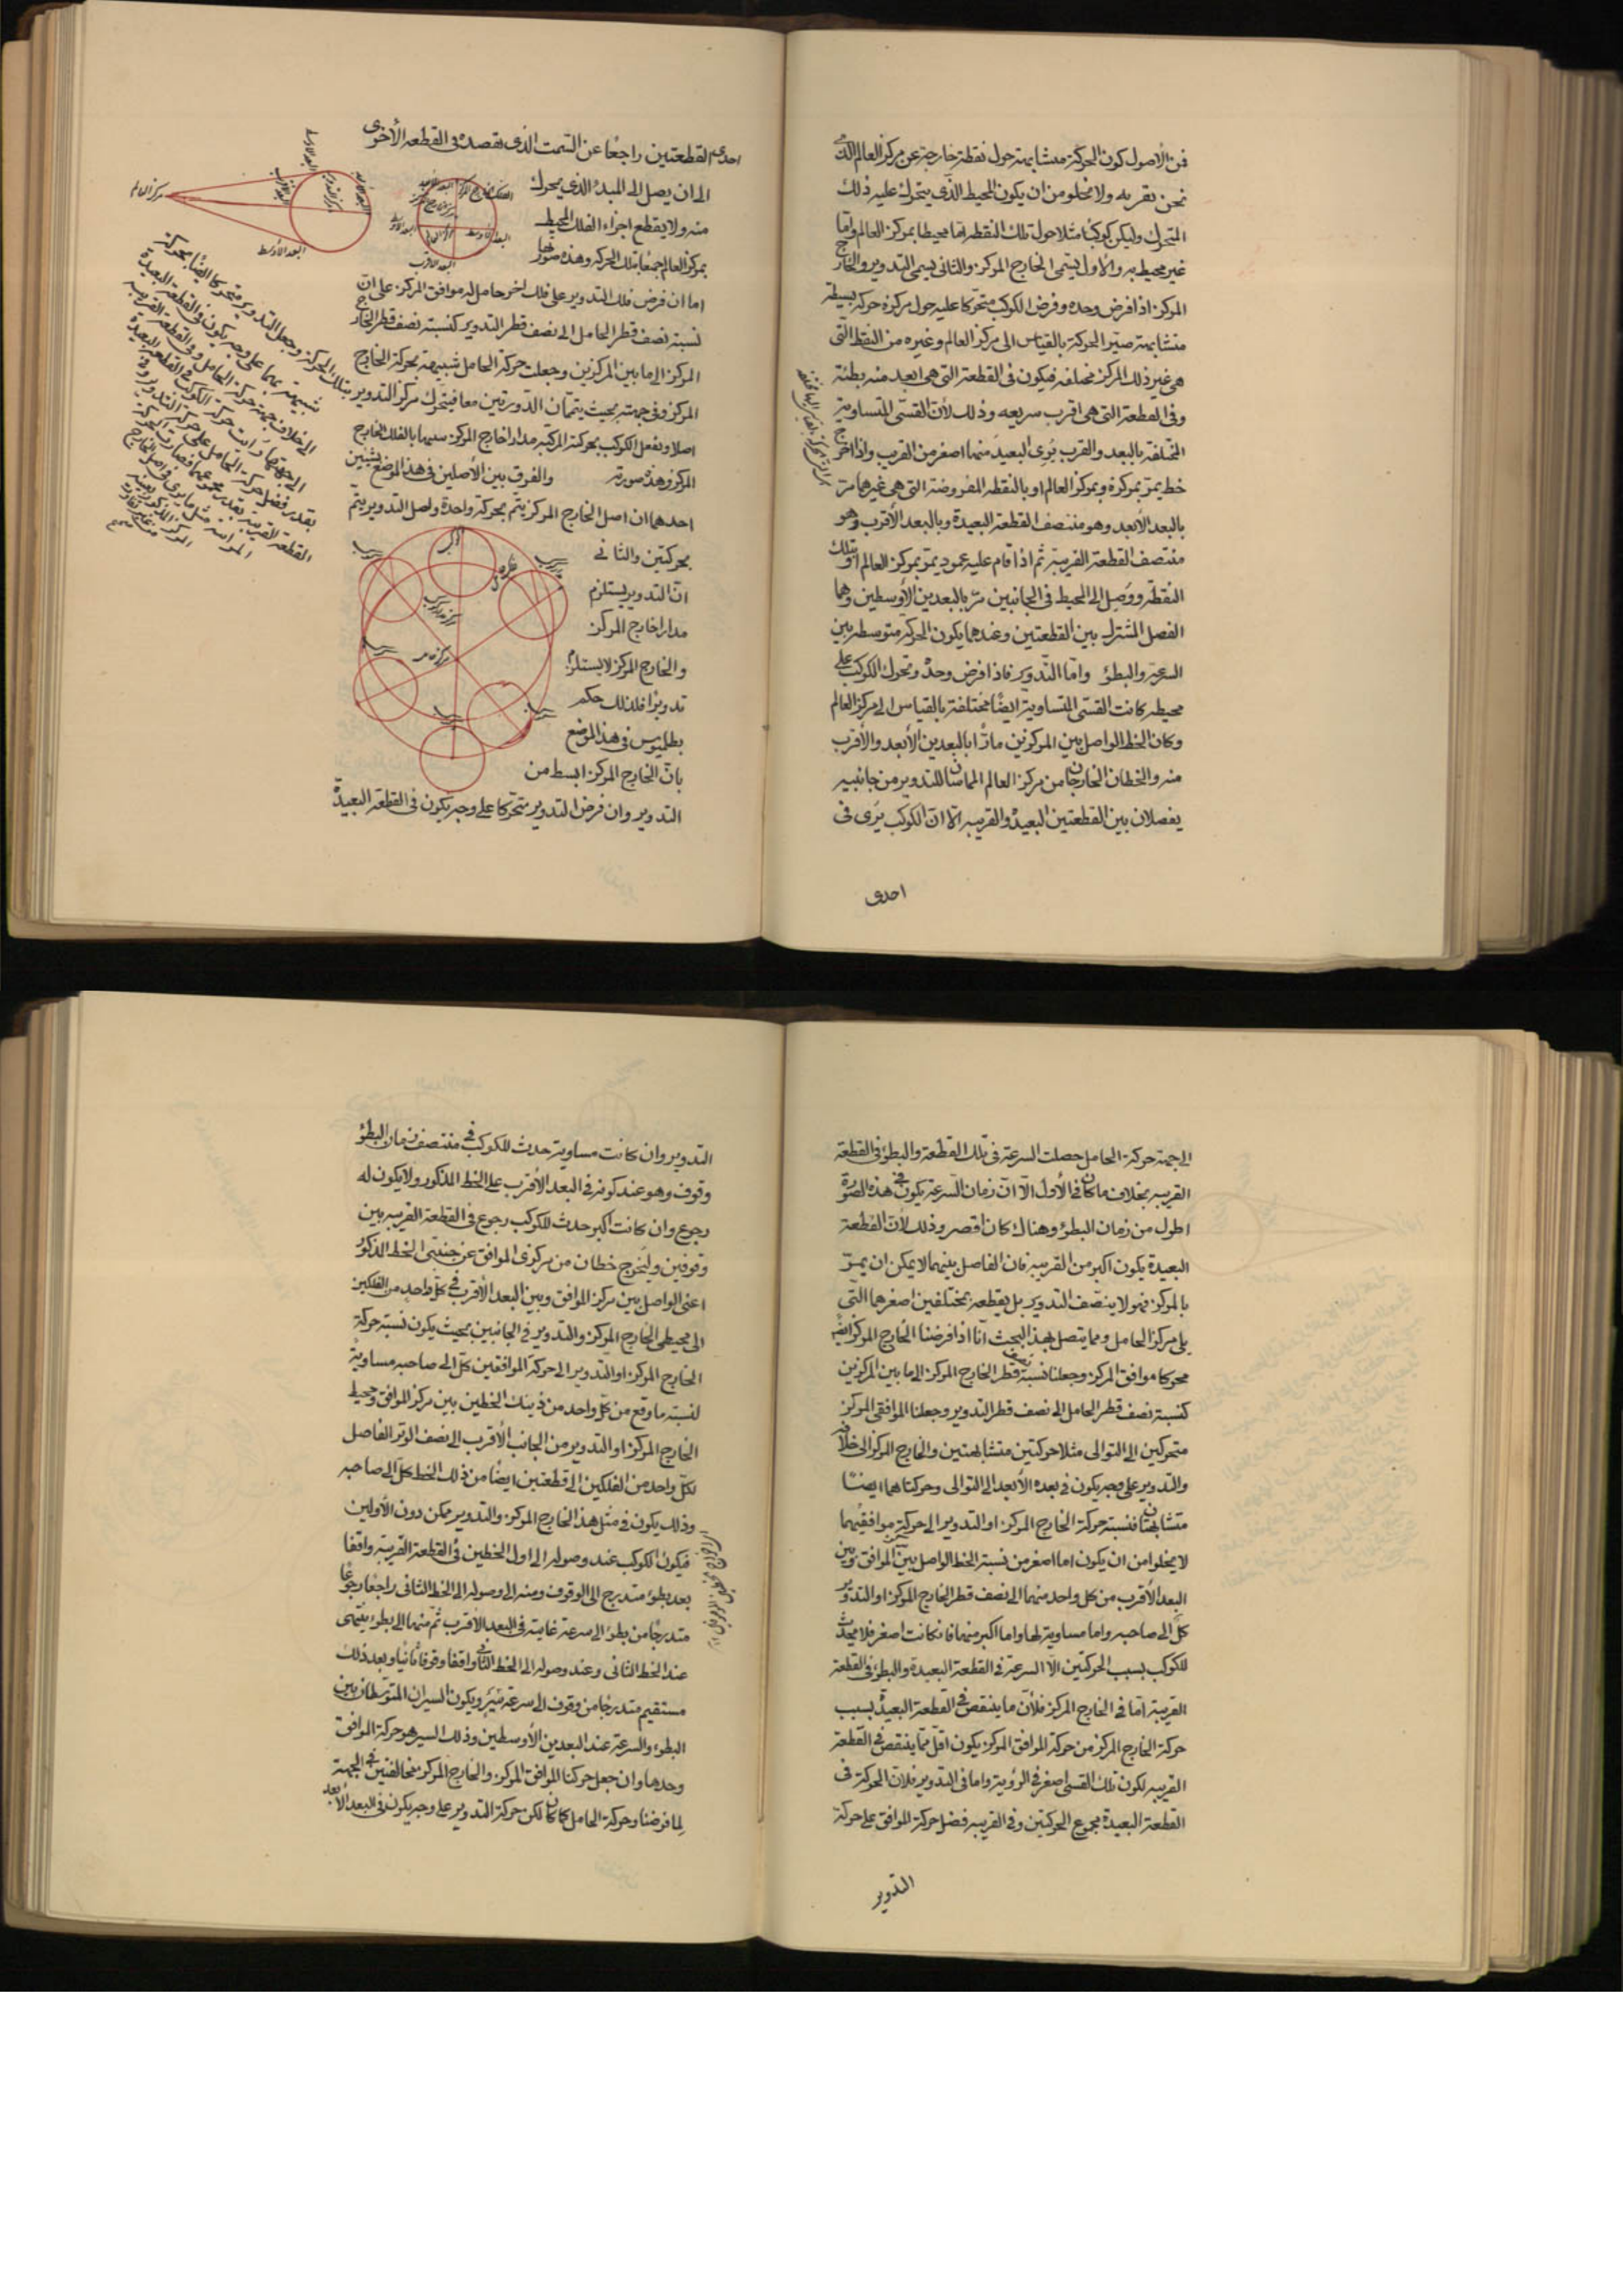 فمن الأصول كون الحركة متشابهة حول نقطة خارجة عن مركز العالم الذى
نحن بقربه ولا يخلو من ان يكون المحيط الذى يتحرك عليه ذلك
المتحرك وليكن كوكبًا مثلا حول تلك النقطة اما محيطا بمركز العالم واما
غير محيط به والأول يسمى الخارج المركز والثانى يسمى التدوير والخارج
المركز اذا فرض وحده وفرض الكوكب متحركا عليه حول مركزه حركة بسيطة
متشابهة صيّر الحركة بالقياس الى مركز العالم وغيره من النقط التى
هى غير ذلك المركز مختلفة فيكون فى القطعة التى هى ابعد منه بطئة
وفى القطعة التى هى اقرب سريعة وذلك لأن القسىّ المتساوية
المختلفة بالبعد والقرب يُرى البعيد منها اصغر من القريب واذا اخرج
خط يمرّ بمركزه وبمركز العالم او بالنقطة المفروضة التى هى غيرها مرّ
بالبعد الأبعد وهو منتصف القطعة البعيدة وبالبعد الأقرب وهو
منتصف القطعة القريبة ثم اذا قام عليه عمود يمرّ بمركز العالم او تلك
النقطة ووُصل الى المحيط فى الجانبين مرّ بالبعدين الأوسطين وهما
الفصل المشترك بين القطعتين وعندهما يكون الحركة متوسطة بين
السرعة والبطؤ واما التدوير فاذا فرض وحده وتحرك الكوكب على
محيطه كانت القسىّ المتساوية ايضًا مختلفة بالقياس الى مركز العالم
وكان الخط الواصل بين المركزين مارًّا بالبعدين الأبعد والأقرب
منه والخطان الخارجان من مركز العالم المماسان للتدوير من جانبيه
يفصلان بين القطعتين البعيدة والقريبة الا ان الكوكب يُرى فى
احدى
احدى القطعتين راجعًا عن السمت الذى يقصده فى القطعة الأخرى
الى ان يصل الى المبدء الذى يتحرك
منه ولا يقطع اجزاء الفلك المحيط
بمركز العالم جميعًا بتلك الحركة وهذه صورتها
مركز العالم
البعد الأوسط
البعد الأقرب
اما ان فرض فلك التدوير على فلك اخر حامل له موافق المركز على ان
نسبة نصف قطر الحامل الى نصف قطر التدوير كنسبة نصف قطر الخارج
المركز الى ما بين المركزين وجعلت حركة الحامل شبيهة بحركة الخارج
المركز وفى جهته بحيث يتمّان الدورتين معا فيتحرك مركز التدوير بتلك الحركة وجعل التدوير متحركا ايضًا بحركة
شبيهة بهما على وجه يكون فى القطعة البعيدة
الى خلاف جهة حركة الحامل وفى القطعة القريبة
الى جهتها
اصلا ويفعل الكوكب بحركته المركبة مدارا خارج المركز شبيها بالفلك الخارج
المركز وهذه صورته والفرق بين الأصلين فى هذا الموضع بشيئين
احدهما ان اصل الخارج المركز يتم بحركة واحدة واصل التدوير يتم
بحركتين والثانى
انّ التدوير يستلزم
مدارا خارج المركز
والخارج المركز لا يستلزم
تدويرًا فلذلك حكم
بطلميوس فى هذا الموضع
بانّ الخارج المركز ابسط من
التدوير وان فرض التدوير متحركا على وجه يكون فى القطعة البعيدة
الى جهة حركة الحامل حصلت السرعة فى تلك القطعة والبطؤ فى القطعة
القريبة بخلاف ما كان فى الأول الا ان زمان السرعة يكون فى هذه الصورة
اطول من زمان البطؤ وهناك كان اقصر وذلك لأن القطعة
البعيدة يكون اكبر من القريبة فان الفاصل بينهما لا يمكن ان يمرّ
بالمركز فهو لا ينصّف التدوير بل يقطعه بمختلفين اصغرهما التى
يلى مركز الحامل ومما يتصل بهذا البحث انّا اذا فرضنا الخارج المركز ايضًا
محركا موافق المركز وجعلنا نسبة نصف قطر الخارج المركز الى ما بين المركزين
كنسبة نصف قطر الحامل الى نصف قطر التدوير وجعلنا الموافقى المركز
متحركين الى التوالى مثلا حركتين متشابهتين والخارج المركز الى خلافه
والتدوير على وجه يكون فى بعده الأبعد الى التوالى وحركتاهما ايضًا
متشابهتان فنسبة حركة الخارج المركز او التدوير الى حركة موافقيهما
لا يخلوا من ان يكون اما اصغر من نسبة الخط الواصل بين الموافق وبين
البعد الأقرب من كل واحد منهما الى نصف قطر الخارج المركز او التدوير
كلّ الى صاحبه واما مساوية لها واما اكبر منها فان كانت اصغر فلا يحدث
للكوكب بسبب الحركتين الا السرعة فى القطعة البعيدة والبطؤ فى القطعة
القريبة اما فى الخارج المركز فلأنّ ما ينتقص فى القطعة البعيدة بسبب
حركة الخارج المركز من حركة الموافق المركز يكون اقلّ مما ينتقص فى القطعة
القريبة لكون تلك القسى اصغر فى الرؤية واما فى التدوير فلأن الحركة فى
القطعة البعيدة مجموع الحركتين وفى القريبة فضل حركة الموافق على حركة
التدوير
التدوير وان كانت مساوية حدث للكوكب فى منتصف زمان البطؤ
وقوف وهو عند كونه فى البعد الأقرب على الخط المذكور ولا يكون له
رجوع وان كانت اكبر حدث للكوكب رجوع فى القطعة القريبة بين
وقوفين وليخرج خطان من مركزى الموافق عن جنبتى الخط المذكور
اعنى الواصل بين مركز الموافق وبين البعد الأقرب فى كل واحد من الفلكين
الى محيطى الخارج المركز والتدوير فى الجانبين بحيث يكون نسبة حركة
الخارج المركز او التدوير الى حركة الموافقين كلّ الى صاحبه مساوية
لنسبة ما وقع من كلّ واحد من ذينك الخطين بين مركز الموافق ومحيط
الخارج المركز او التدوير من الجانب الأقرب الى نصف الوتر الفاصل
لكل واحد من الفلكين الى قطعتين ايضًا من ذلك الخط كلّ الى صاحبه
وذلك يكون فى مثل هذا الخارج المركز والتدوير ممكن دون الأولين
فيكون الكوكب عند وصوله الى اول الخطين فى القطعة القريبة واقفا
بعد بطؤ متدرج الى الوقوف ومنه الى وصوله الى الخط الثانى راجعًا رجوعًا
متدرجًا من بطؤ الى سرعة غايته فى البعد الاقرب ثم منها الى بطؤ ينتهى
عند الخط الثانى وعند وصوله الى الخط الثانى واقفا وقوفا ثانيا وبعد ذلك
مستقيم متدرجًا من وقوف الى سرعة سير ويكون السيران المتوسطان بين
البطؤ والسرعة عند البعدين الأوسطين وذلك السير هو حركة الموافق
وحدها وان جعل حركتا الموافق المركز والخارج المركز مخالفتين فى الجهة
لما فرضنا وحركة الحامل كما كان لكن حركة التدوير على وجه يكون فى البعد الأبعد